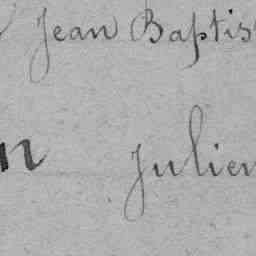 Jean Baptis
n Julien